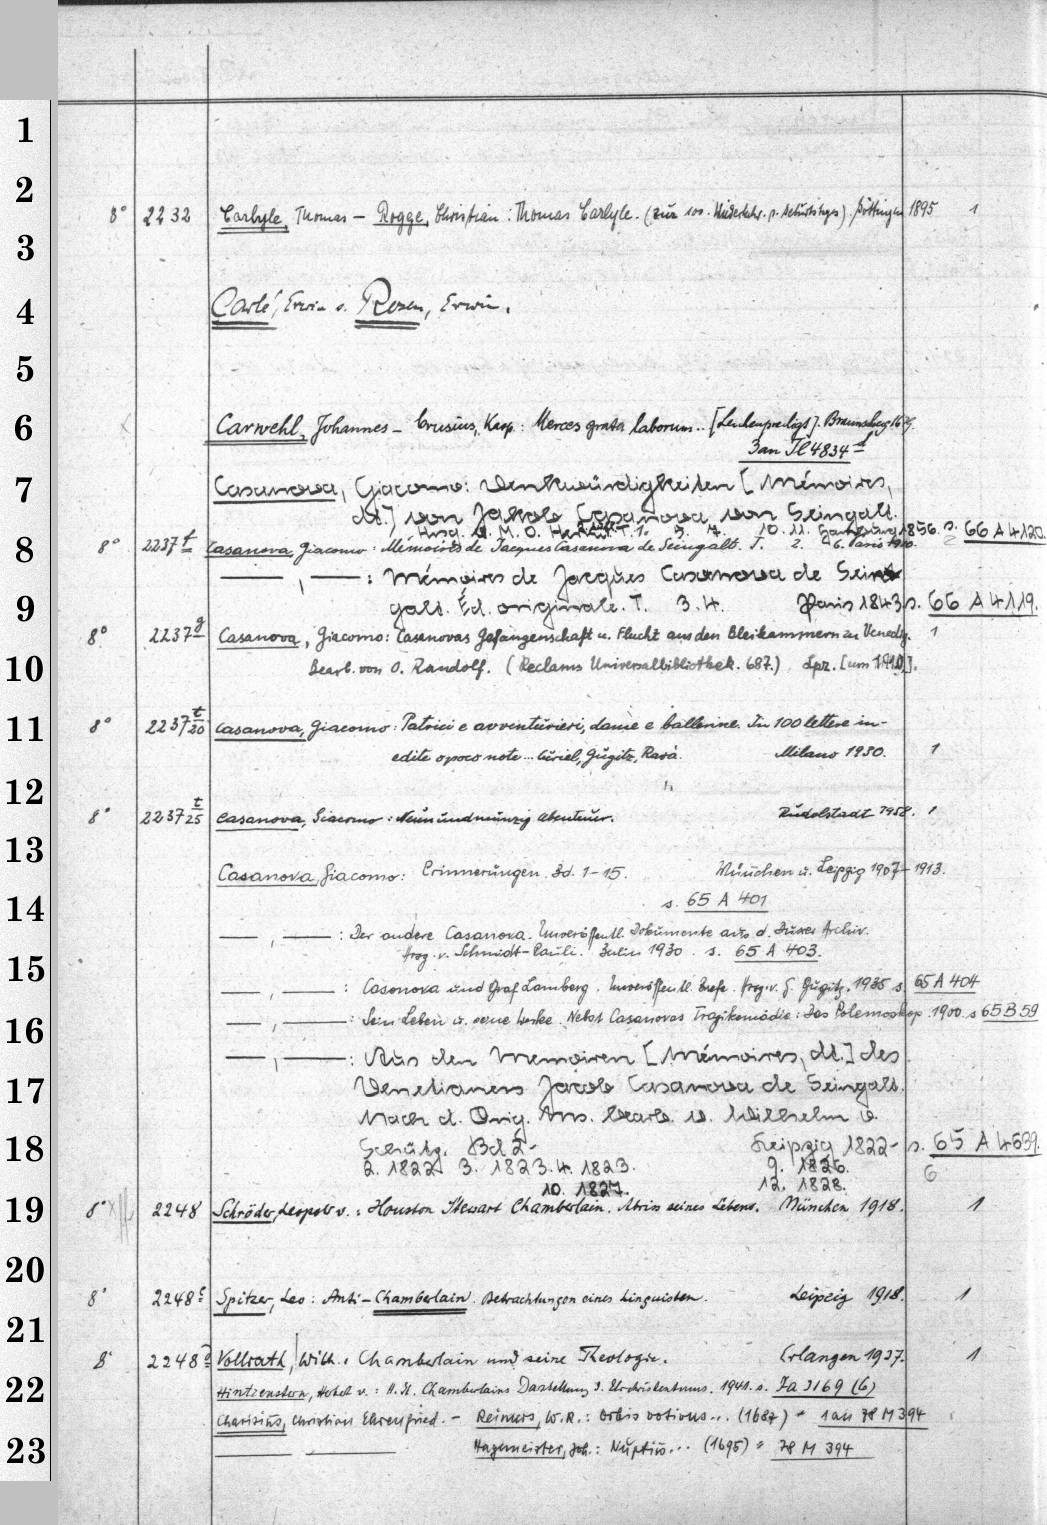 1
2
8° 2232 Carlyle, Thomas – Rogge, Christian: Thomas Carlyle. (Zur 100. Wiederkehr. s. Geburtstages). Göttingen 1895 1
3
4 Carlé, Erwin s. Rosen, Erwin.
5
6 Carwehl, Johannes – Crusius, Kasp.: Merces grata laborum.. [Leichenpredigt]. Braunsberg
3 an
7 Casanova, Giacomo: Denkwürdigkeiten [Mémoires,
dt.] von Jakob Casanova von Seingalt.
T. 1. 5. 7. 10. 11. Hamburg 1856. s. 66 A 4120.
8 8° 2237 f Casanova, Giacomo: Mémoires de Jacques Casanova de Seingalt. T. 2. 6. Paris
——, ——: Mémoires de Jacques Casanova de Sein-
9 galt. Éd. originale. T. 3.4. Paris 1843 s. 66 A 4119.
8° 2237 g Casanova, Giacomo: Casanovas Gefangenschaft u. Flucht aus den Bleikammern zu Venedig. 1
10 Bearb. von O. Randolf. (Reclams Universalbibliothek. 687.) Lpz. [um 1910].
11 8° 2237 t/20 Casanova, Giacomo: Patrici e avventurieri, dame e ballerine. In 100 lettere in-
edite o poco note ... Curiel, Gugitz, Ravà. Milano 1930. 1
12
8° 2237 t/25 Casanova, Giacomo: Neunundneunzig Abenteuer. Rudolstadt 1958. 1
13
Casanova, Giacomo: Erinnerungen. Bd. 1–15. München u. Leipzig 1907–1913.
14 s. 65 A 401
——, ——: Der andere Casanova. Unveröffentl. Dokumente aus d. Duxer Archiv.
15 Hrsg. v. Schmidt-Pauli. Berlin 1930. s. 65 A 403.
——, ——: Casanova und Graf Lamberg. Unveröffentl. Briefe. Hrsg. v. G. Gugitz. 1935 s. 65 A 404
16 ——, ——: Sein Leben u. seine Werke. Nebst Casanovas Tragikomödie: Das Polemoskop. 1900. s 65 B 59
——, ——: Aus den Memoiren [Mémoires, dt.] des
17 Venetianers Jacob Casanova de Seingalt.
Nach d. Orig. Ms. bearb. v. Wilhelm v.
18 Schütz. Bd 2- Leipzig 1822- s. 65 A 4639.
2. 1822 3. 1823. 4. 1823. 9. 1826. 6
10. 1827. 12. 1828.
19 8° 2248 Schröder, Leopold v.: Houston Stewart Chamberlain. Abriss seines Lebens. München 1918. 1
20
8° 2248 c Spitzer, Leo: Anti-Chamberlain. Betrachtungen eines Linguisten. Leipzig 1918. 1
21
8° 2248 d Vollrath, Wilh.: Chamberlain und seine Theologie. Erlangen 1937. 1
22 Hintzenstern, Herbert v.: H. St. Chamberlains Darstellung d. Urchristentums. 1941. s. Fa 3169 (6)
Charisius, Christian Ehrenfried. – Reimers, W.R.: Orbis votivus... (1687) = 1 an 78 M 394
23 —— —— Hagemeister, Joh.: Nuptiis... (1695) = 78 M 394